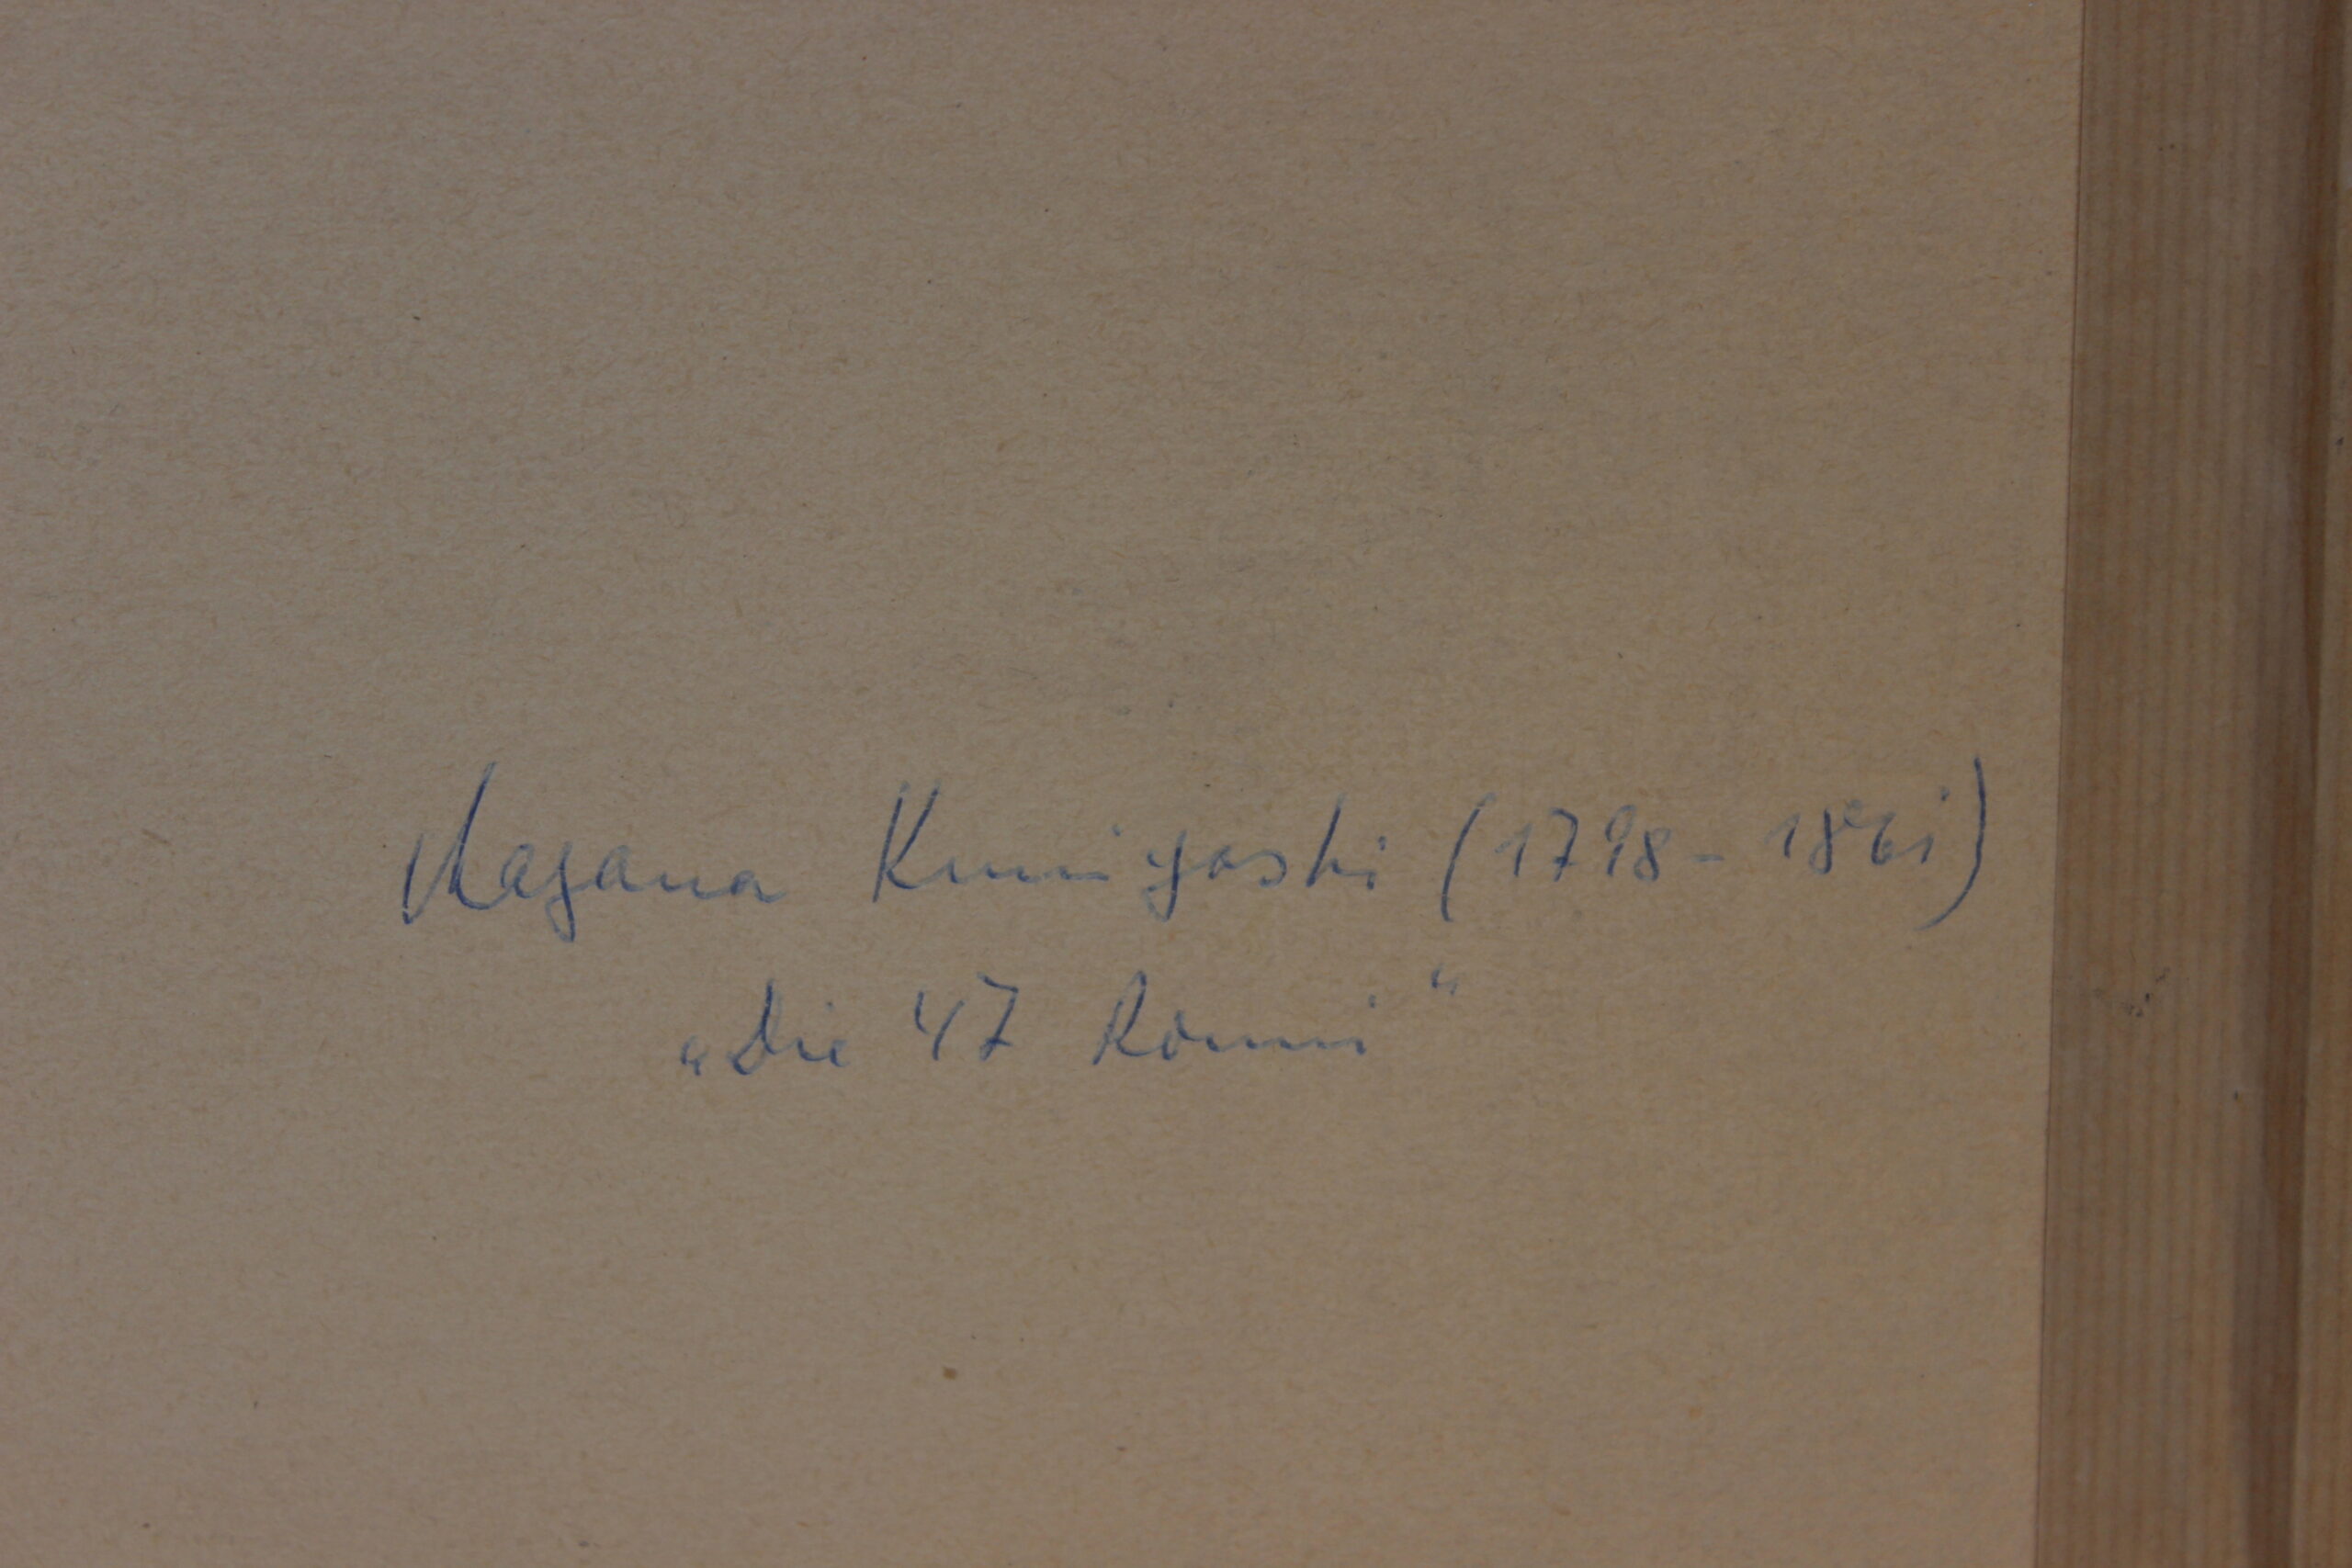 Nagana Kuniyoshi (1798 - 1861)
„Die 47 Ronin“